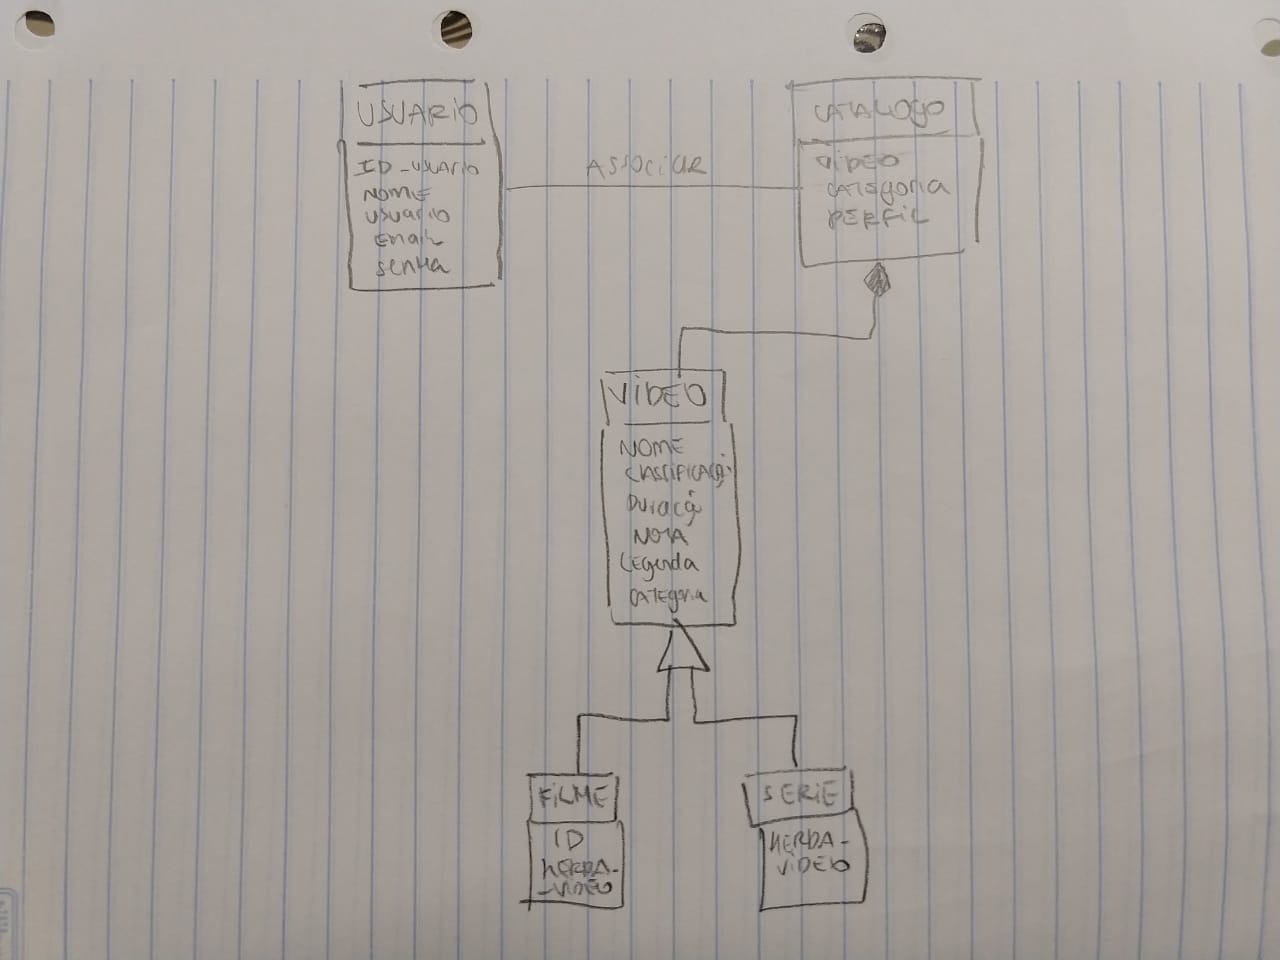 USUARIO
ID_USUARIO
NOME
USUARIO
Email
SENHA
ASSOCIAR
CATALOGO
VIDEO
CATEGORIA
PERFIL
VIDEO
NOME
CLASSIFICAÇÃO
DURAÇÃO
NOTA
LEGENDA
CATEGORIA
FILME
ID
HERDA-
-VIDEO
SERIE
HERDA-
VIDEO